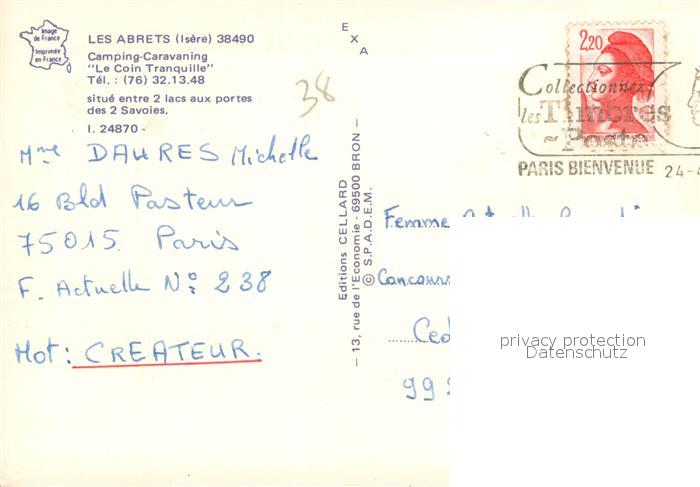 Image
de France
Imprimée
en France
LES ABRETS (Isère) 38490
Camping-Caravaning
"Le Coin Tranquille"
Tél. : (76) 32.13.48
situé entre 2 lacs aux portes
des 2 Savoies.
I. 24870 -
38
Mme DAURES Michelle
16 Bld Pasteur
75015 Paris
F. Actuelle N° 238
Mot : CREATEUR.
EXA
Editions CELLARD
— 13, rue de l'Economie - 69500 BRON —
© S.P.A.D.E.M.
2,20
Collectionnez
les Timbres
~ Poste
PARIS BIENVENUE 24-
Femme
Concours
Ced
99
privacy protection
Datenschutz